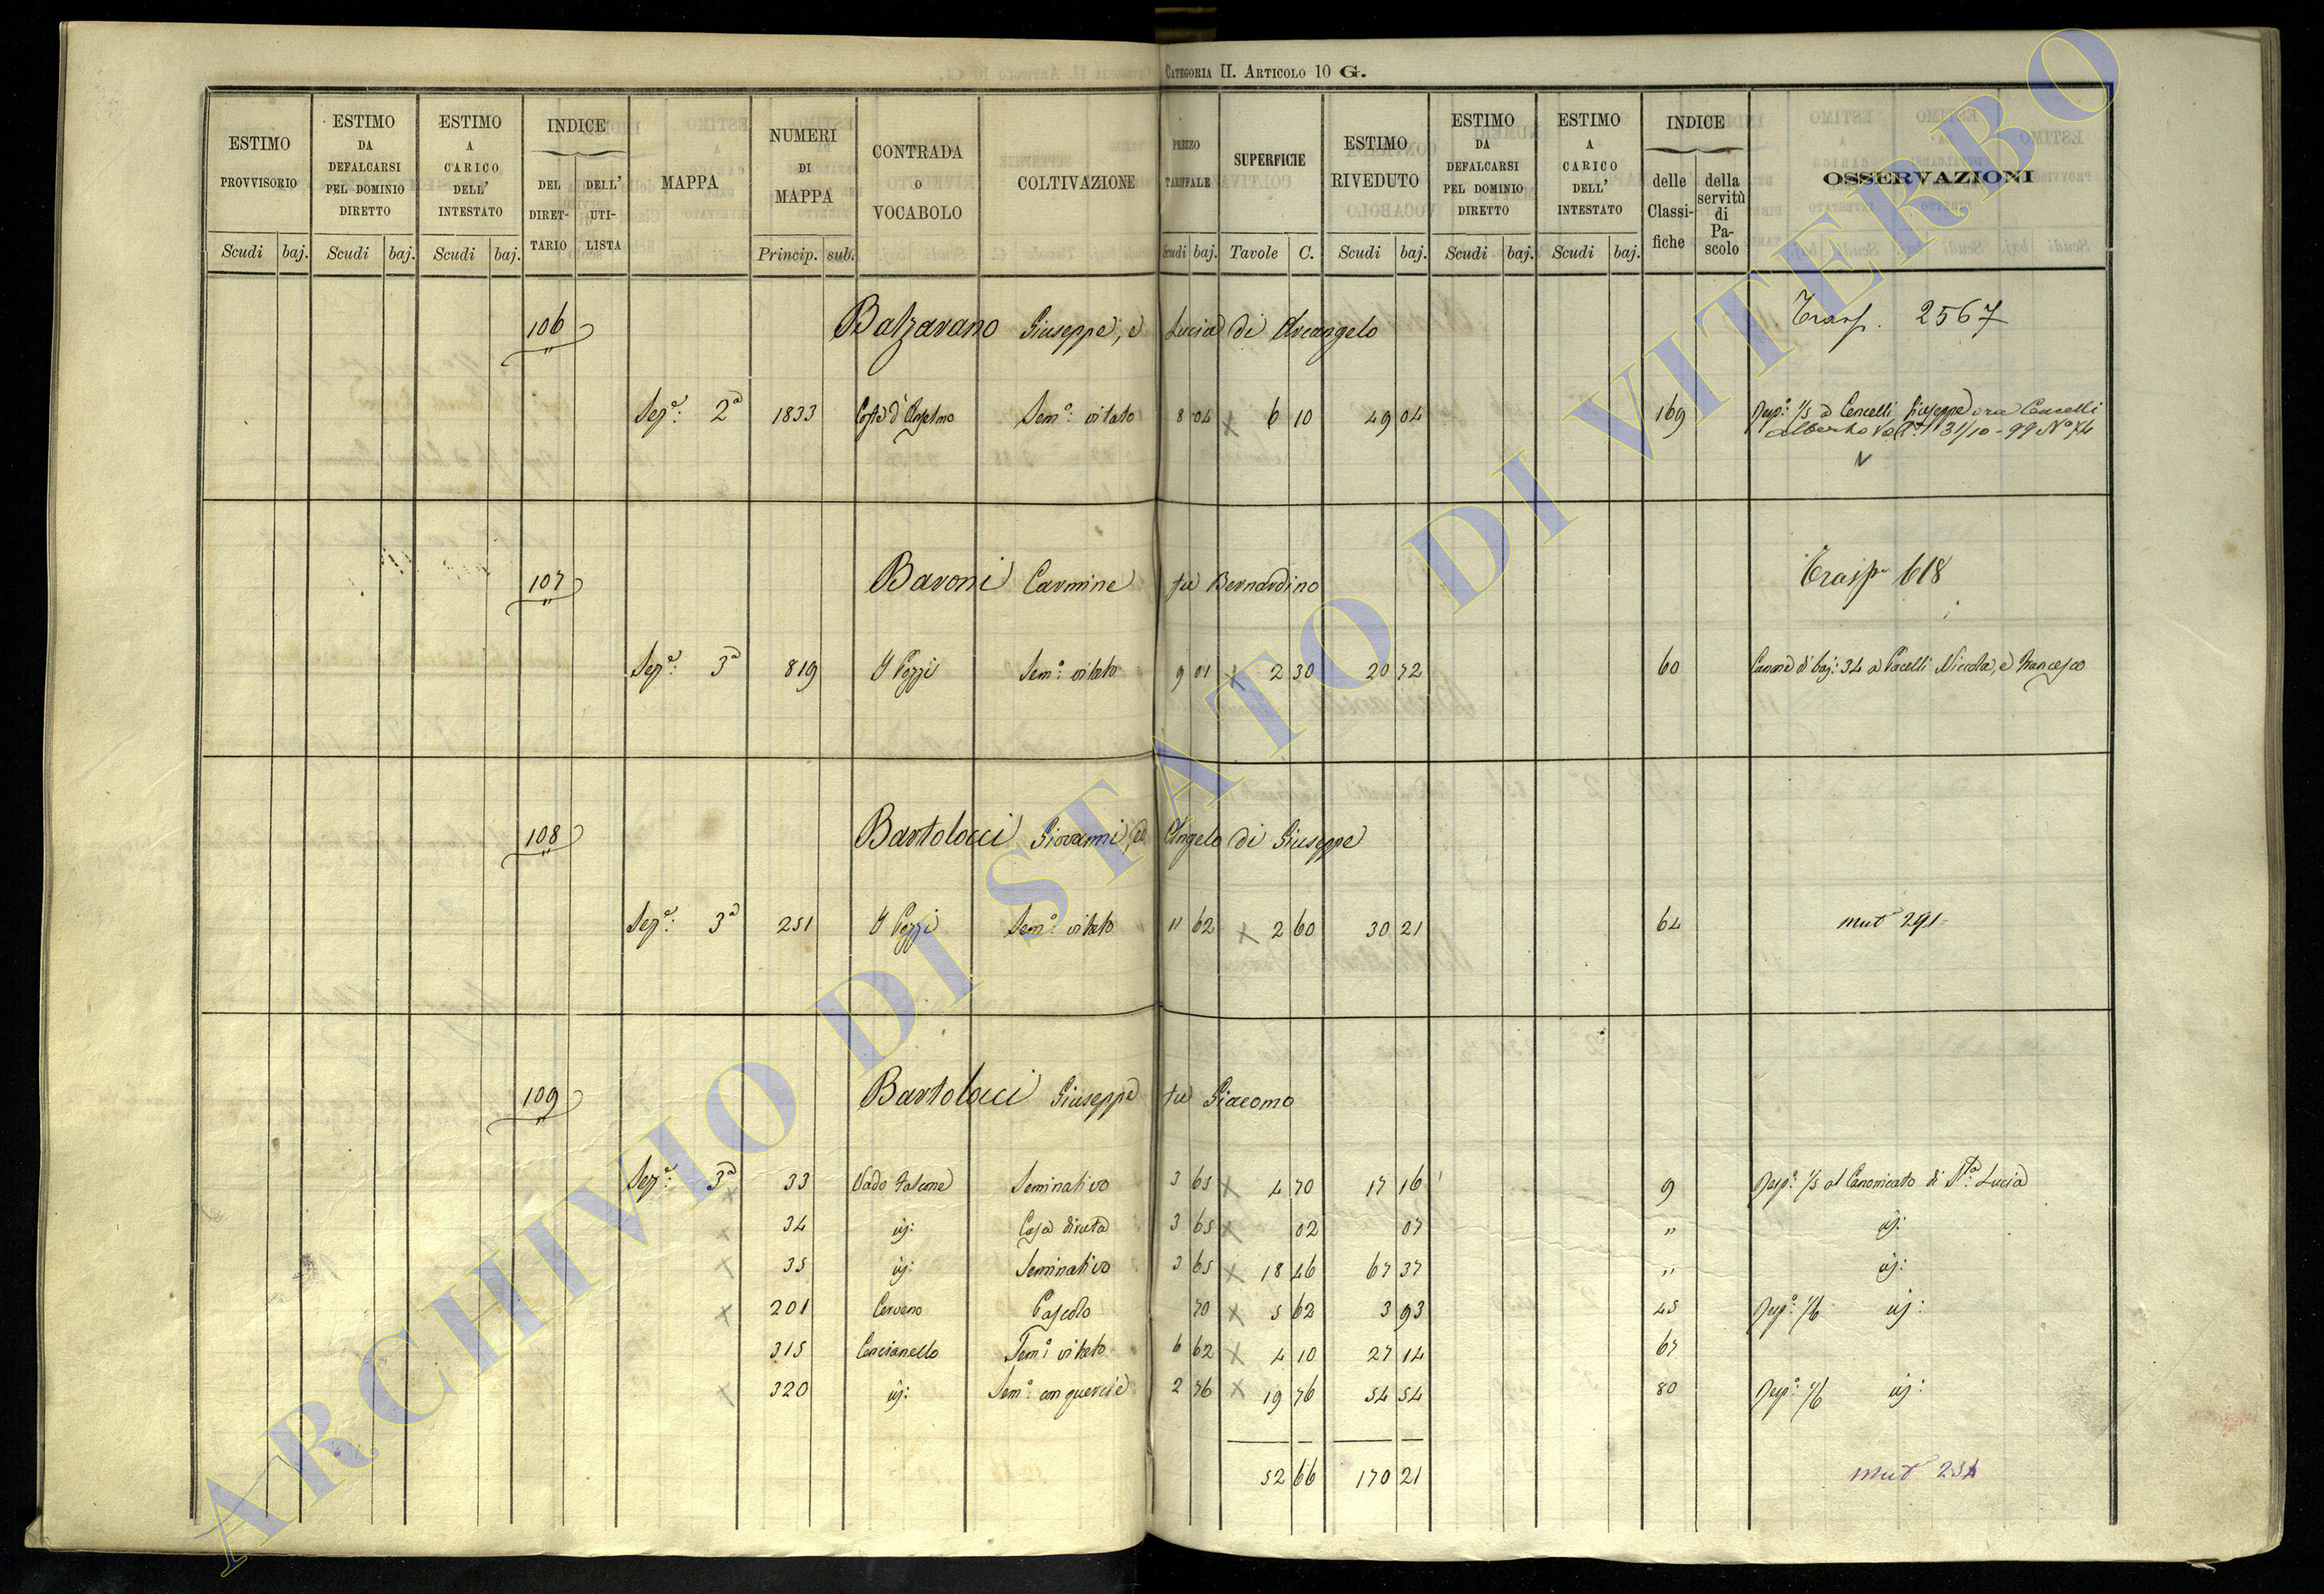 CATEGORIA II. ARTICOLO 10 G.
ESTIMO PROVVISORIO Scudi baj.
ESTIMO DA DEFALCARSI PEL DOMINIO DIRETTO Scudi baj.
ESTIMO A CARICO DELL' INTESTATO Scudi baj.
INDICE DEL DIRET-TARIO DELL' UTI-LISTA
MAPPA
NUMERI DI MAPPA Princip. sub.
CONTRADA O VOCABOLO
COLTIVAZIONE
PREZZO TARIFFALE Scudi baj.
SUPERFICIE Tavole C.
ESTIMO RIVEDUTO Scudi baj.
ESTIMO DA DEFALCARSI PEL DOMINIO DIRETTO Scudi baj.
ESTIMO A CARICO DELL' INTESTATO Scudi baj.
INDICE delle Classi-fiche della servitù di Pa-scolo
OSSERVAZIONI
106 Balzarano Giuseppe, e Lucia di Arcangelo Trasp. 2567
Sez.e: 2a 1833 Costa d'Anselmo Sem.o: vitato 8 04 x 6 10 49 04 169 Risp.a: 1/5 a Cencelli Giuseppe ora Cencelli
Alberto 31/10-99 No 74
107 Baroni Carmine fu Bernardino Trasp 618
Sez.e: 3a 819 I Pozzi Sem.o: vitato 9 01 x 2 30 20 72 60 Canone di baj: 34 a Pacelli Nicola, e Francesco
108 Bartolocci Giovanni, ed Angelo di Giuseppe
Sez.e: 3a 251 I Pozzi Sem.o: vitato 11 62 x 2 60 30 21 64 mut 291
109 Bartolocci Giuseppe fu Giacomo
Sez.e: 3a x 33 Vado Falcone Seminativo 3 65 x 4 70 17 16 9 Risp.a: 1/5 al Canonicato di S.ta: Lucia
x 34 id: Casa diruta 3 65 x 02 07 " id:
x 35 id: Seminativo 3 65 x 18 46 67 37 " id:
x 201 Cerreno Pascolo 70 x 5 62 3 93 45 Risp.a: 1/6 id:
315 Cencianello Sem.o: vitato 6 62 x 4 10 27 14 67
x 320 id: Sem.o: con quercie 2 76 x 19 76 54 54 80 Risp.a: 1/6 id:
52 66 170 21 mut 234
ARCHIVIO DI STATO DI VITERBO